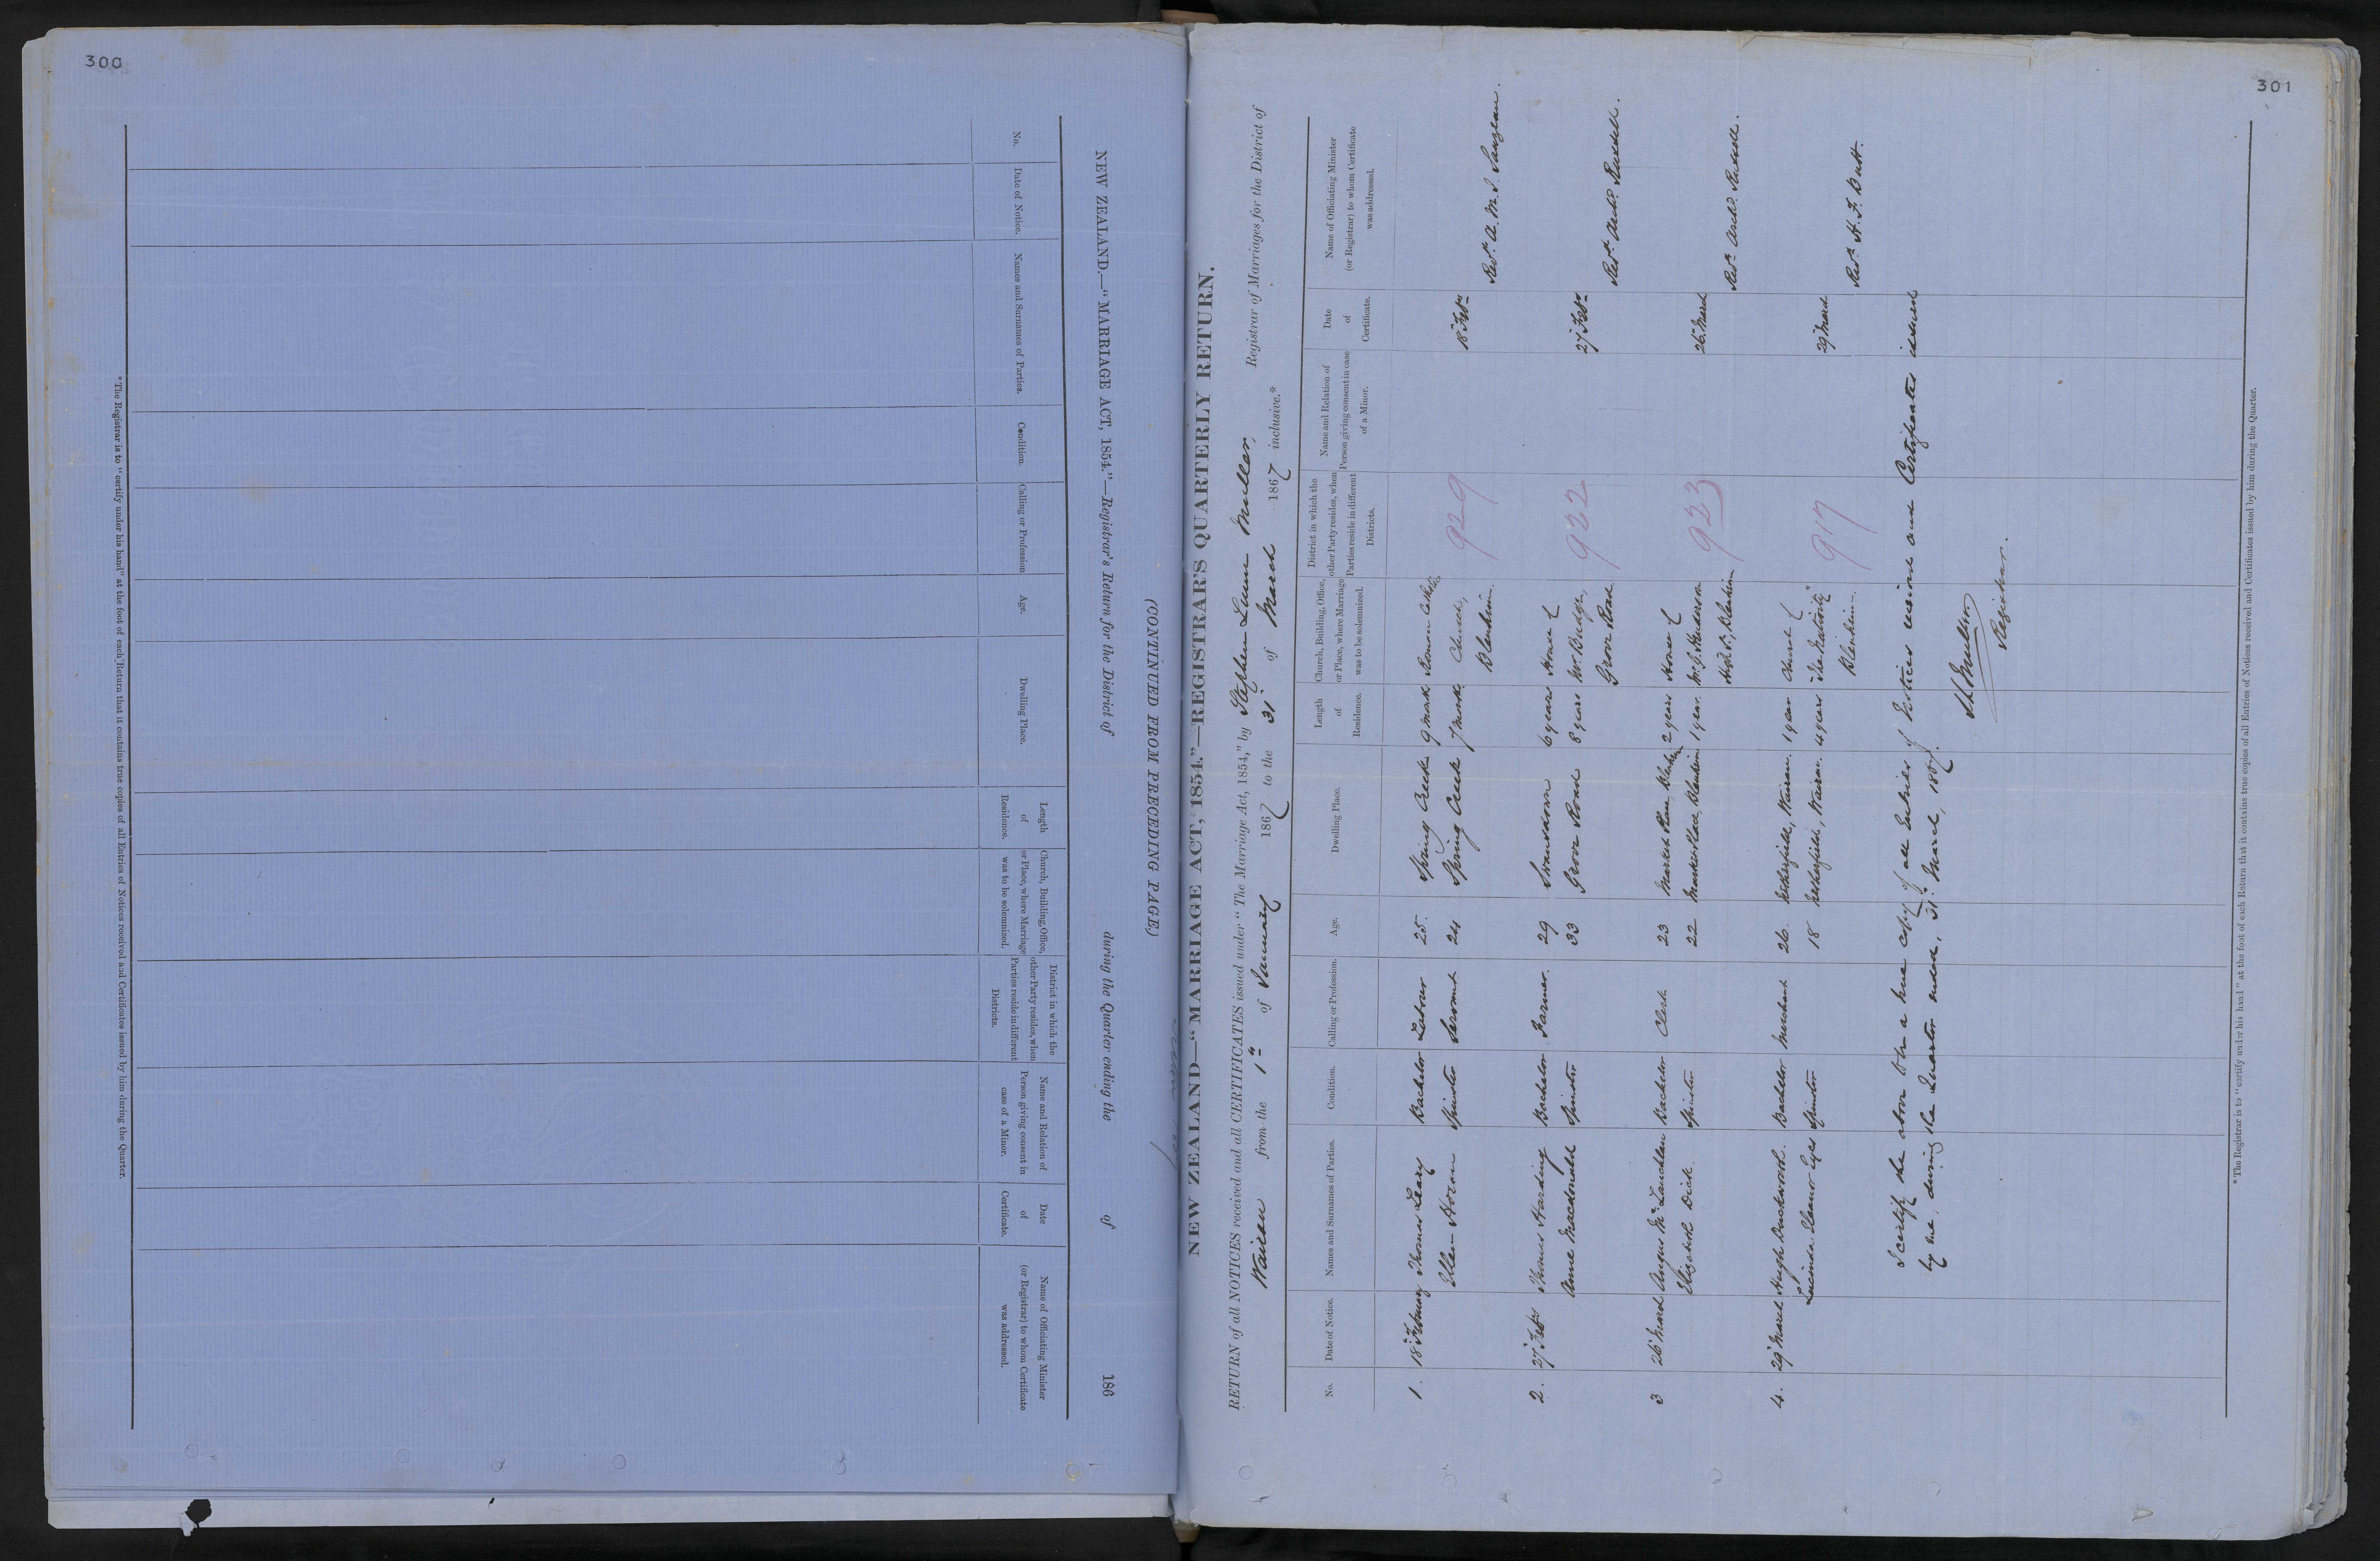 300
NEW ZEALAND.—"MARRIAGE ACT, 1854."—Registrar's Return for the District of during the Quarter ending the of 186
(CONTINUED FROM PRECEDING PAGE.)
No.
Date of Notice.
Names and Surnames of Parties.
Condition.
Calling or Profession
Age.
Dwelling Place.
Length
of
Residence.
Church, Building, Office,
or Place, where Marriage
was to be solemnized.
District in which the
other Party resides, when
Parties reside in different
Districts.
Name and Relation of
Person giving consent in
case of a Minor.
Date
of
Certificate.
Name of Officiating Minister
(or Registrar) to whom Certificate
was addressed.
*The Registrar is to "certify under his hand" at the foot of each Return that it contains true copies of all Entries of Notices received and Certificates issued by him during the Quarter.
301
NEW ZEALAND—"MARRIAGE ACT, 1854."—REGISTRAR'S QUARTERLY RETURN.
RETURN of all NOTICES received and all CERTIFICATES issued under "The Marriage Act, 1854," by Stephen Lunn Muller, Registrar of Marriages for the District of
Wairau from the 1st of January 1867 to the 31 of March 1867 inclusive.*
No.
Date of Notice.
Names and Surnames of Parties.
Condition.
Calling or Profession.
Age.
Dwelling Place.
Length
of
Residence.
Church, Building, Office,
or Place, where Marriage
was to be solemnized.
District in which the
other Party resides, when
Parties reside in different
Districts.
Name and Relation of
Person giving consent in case
of a Minor.
Date
of
Certificate.
Name of Officiating Minister
(or Registrar) to whom Certificate
was addressed.
1. 18 February Thomas Leary Bachelor Labourer 25. Spring Creek 9 months Roman Catholic 929 18 Feby
Ellen Horan Spinster Servant 24 Spring Creek 7 months Church, Revd. A. M. S.
Blenheim.
2. 27 Feby Thomas Harding Bachelor Farmer. 29 Swansdown 6 years House of 922 27 Feby
Anne Macdonald Spinster 33 Grove Road 8 years Mr. Budge, Revd. Archd. Russell.
Grove Road
3 26 March Angus McLauchlan Bachelor Clerk 23 Market Place, Blenheim 2 years House of 923 26 March
Elizabeth Dick Spinster 22 Market Place, Blenheim 1 year. Mr. J. Henderson Revd. Archd. Russell.
High St., Blenheim
4. 29 March Hugh Duckworth. Bachelor Merchant 26. Wairau. 1 year Church of 917 29 March
Lucinda Eleanor Eyes Spinster 18 Wairau. 4 years "The Nativity" Revd. H. F. Butt.
Blenheim.
I certify the above to be a true copy of all Entries of Notices received and Certificates issued
by me, during the Quarter ended, 31st March, 1867.
S L Muller
Registrar.
*The Registrar is to "certify under his hand" at the foot of each Return that it contains true copies of all Entries of Notices received and Certificates issued by him during the Quarter.